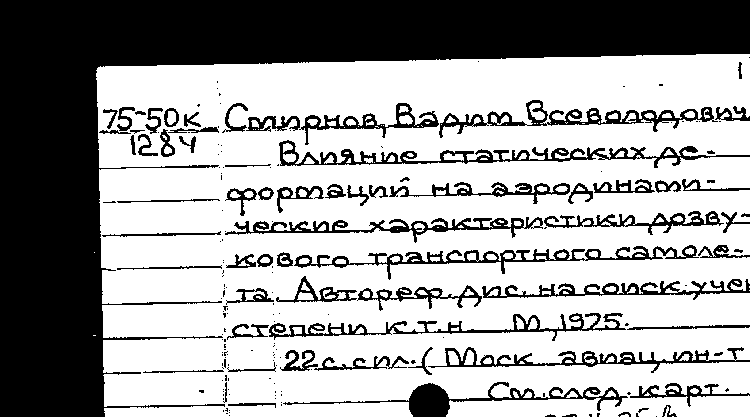 1
75-50к Смирнов, Вадим Всеволодович
1284
Влияние статических де-
формаций на аэродинами-
ческие характеристики дозву-
кового транспортного самоле-
та. Автореф. дис. на соиск. учен
степени к.т.н. М, 1975.
22 с. с ил. (Моск авиац. ин-т
См. след. карт.